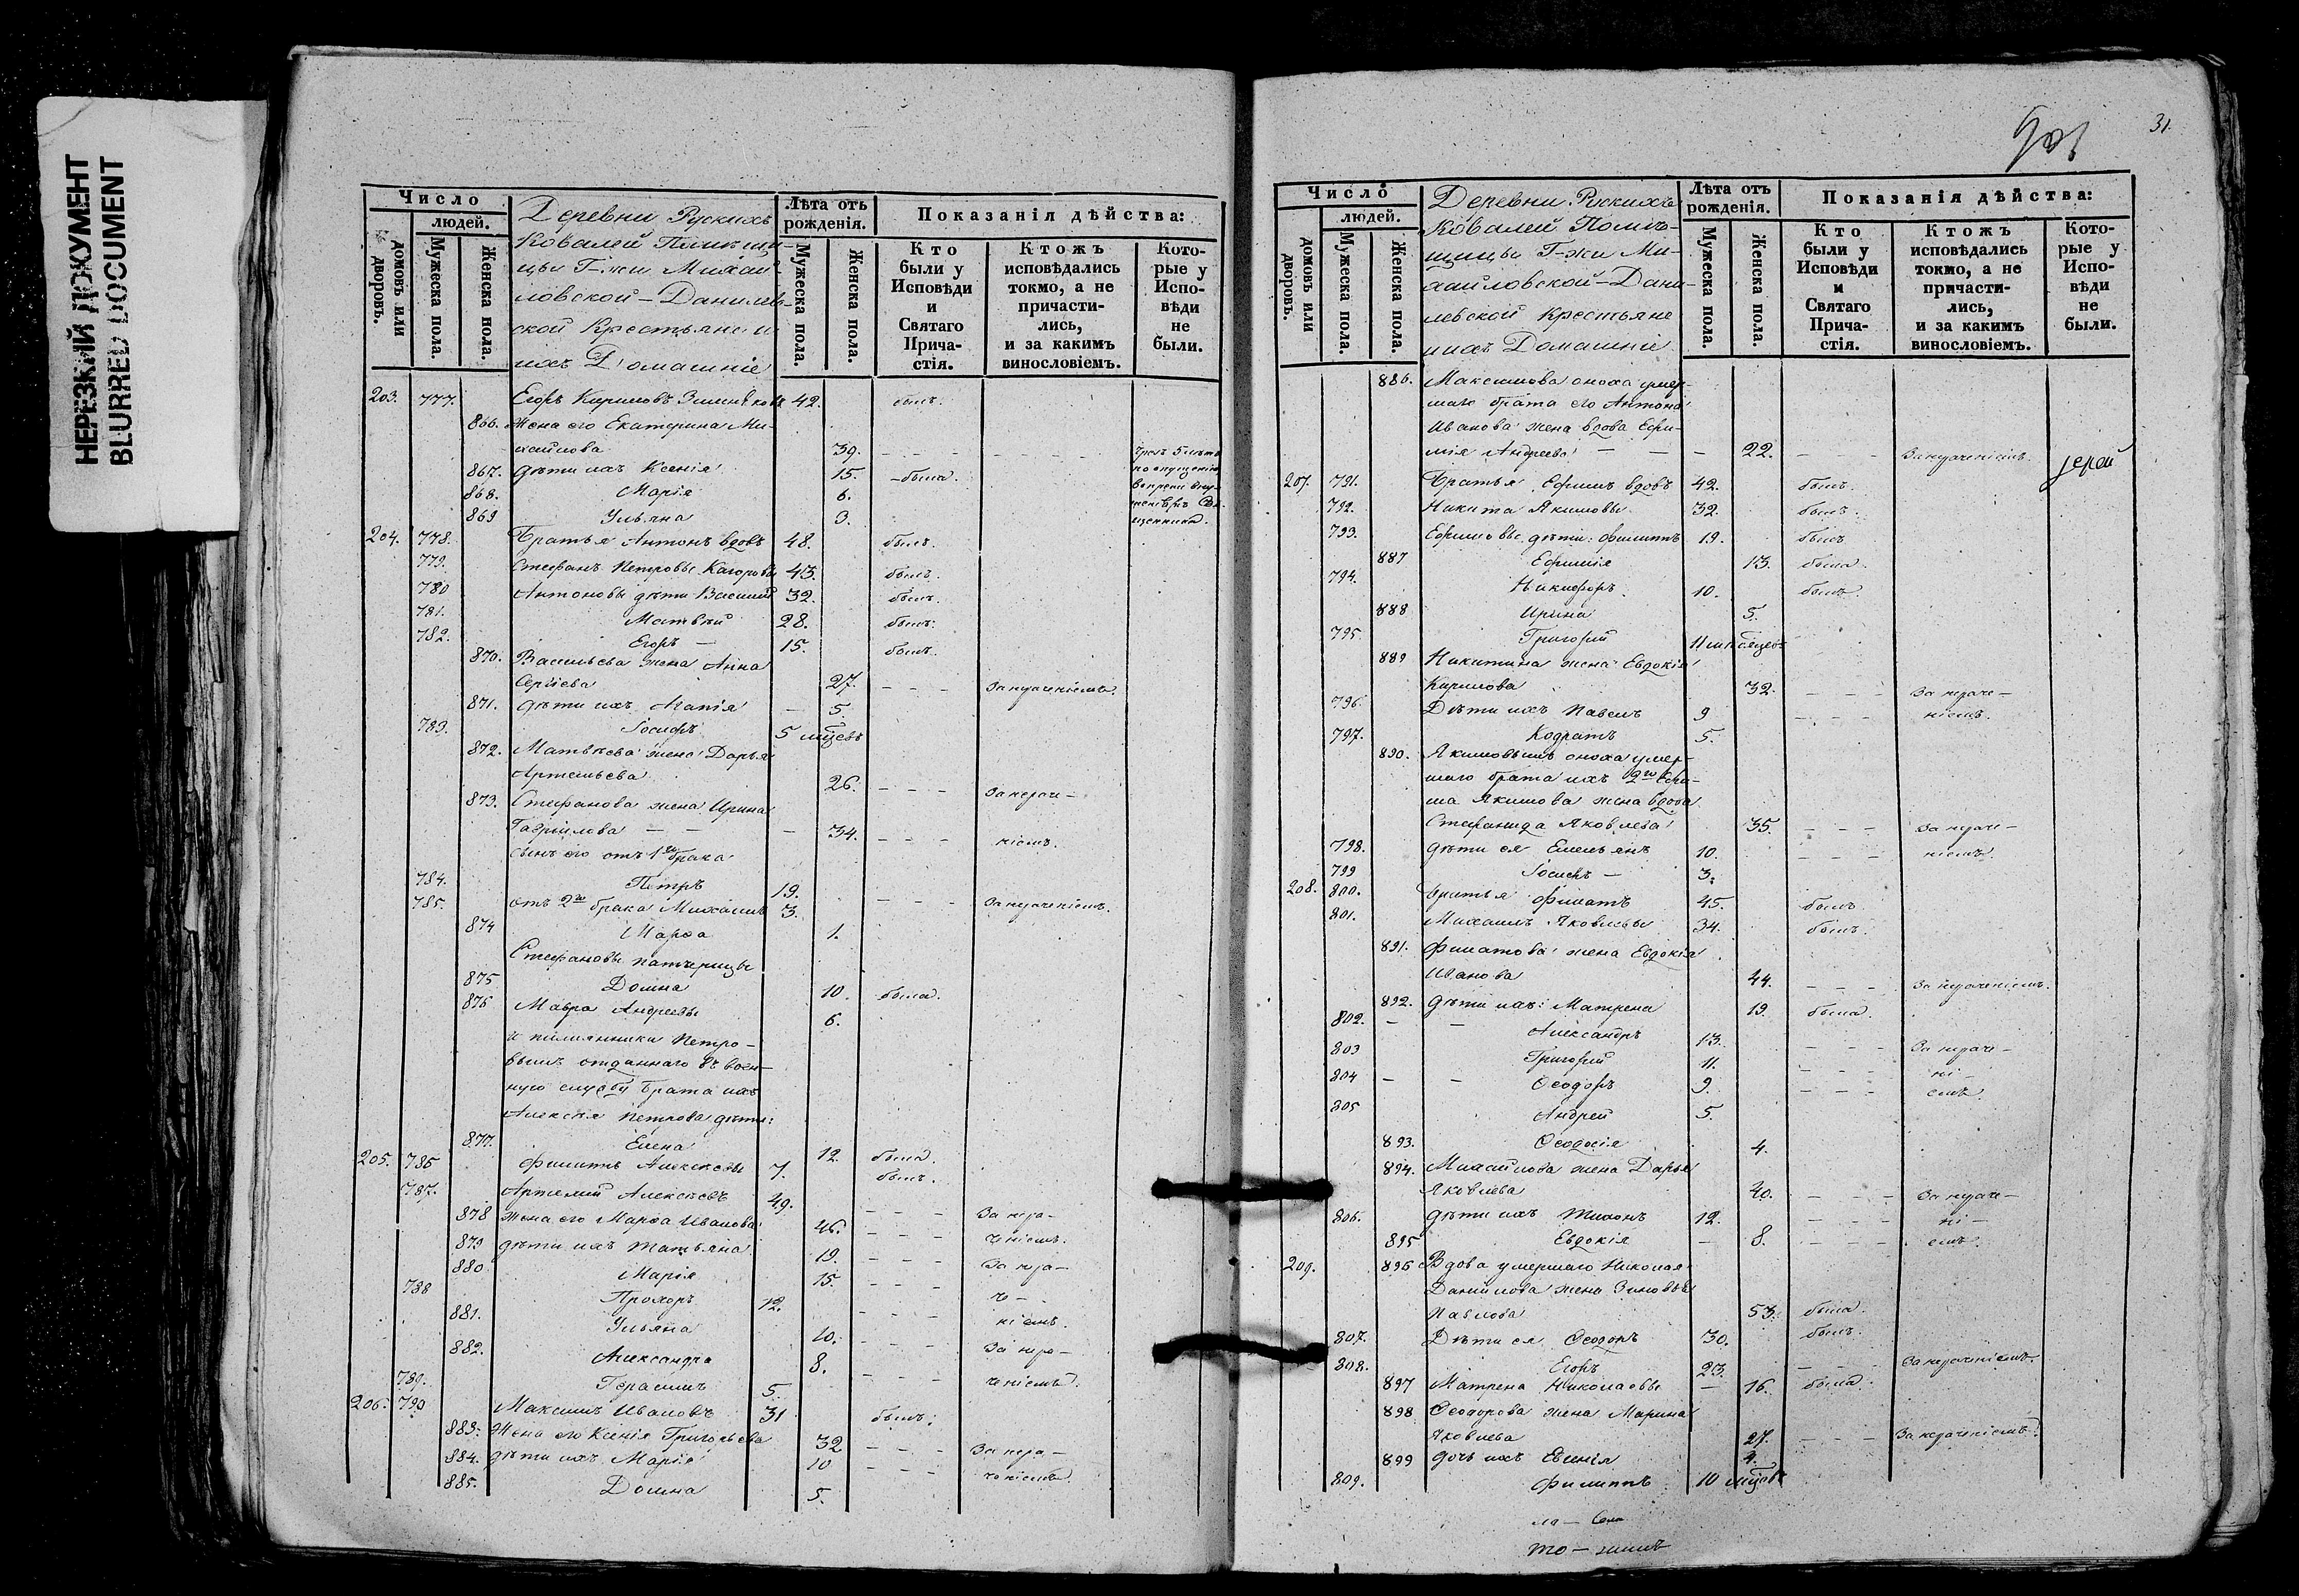 НЕРЕЗКИЙ ДОКУМЕНТ
BLURRED DOCUMENT
Число
людей.
домовъ или дворовъ.
Мужеска пола.
Женска пола.
Деревни Рускихъ
Ковалей Помѣщи-
цы Г-жи Михай-
ловской-Данилев-
ской Крестьяне и
ихъ Домашніе
Лѣта отъ рожденія.
Мужеска пола.
Женска пола.
Показанія дѣйства:
Кто были у Исповѣди и Святаго Прича-стія.
Ктожъ исповѣдались токмо, а не причасти-лись, и за какимъ винословіемъ.
Кото-рые у Испо-вѣди не были.
203. 777. Егоръ Кириловъ 42. былъ.
866. Жена его Екатерина Ми-
хайлова 39. - - -
867. Дѣти ихъ Ксенія 15. - была.
868. Марія 6.
869 Ульяна 3.
204. 778. Братья Антонъ вдовъ 48. былъ.
779. Стефанъ Петровы 43. былъ.
780 Антоновы дѣти Василій 32. былъ.
781. Матвѣй 28. былъ.
782. Егоръ - 15. былъ.
870. Васильева жена Анна
Сергіева 27. - - - За нераченіемъ.
871. Дѣти ихъ - 5.
783. Іосифъ 5 мцевъ
872. Матвѣева жена Дарья
Артемьева 26. - - - За нераче-
873. Стефанова жена Ирина
Гавріилова - - - 34. - - - ніемъ.
сынъ его отъ 1го брака
784. Петръ 19.
785. отъ 2го брака Михаилъ 3. - - - За нераченіемъ.
874 Марѳа 1.
Стефановы патчерицы
875 Домна 10. была.
876 Мавра Андреевы 6.
и племянники Петро-
вымъ отданнаго въ воен-
ную службу брата ихъ
Алексѣя Петрова дѣти:
877. Елена 12. была.
205. 786 Филиппъ Алексѣевы 7. былъ.
787. Артемій Алексѣевъ 49. - - - За нера-
878 Жена его Марѳа Иванова 46. - - - ченіемъ.
879 Дѣти ихъ Татьяна 19. - - - За нера-
880 Марія 15. - - - че-
788 Прохоръ 12. - - - ніемъ.
881. Ульяна 10. - - За нера-
882. Александра 8. - - - ченіемъ.
789. Герасимъ 5.
206. 790 Максимъ Ивановъ 31 былъ.
883. Жена его Ксенія Григорьева 32 - - - За нера-
884. Дѣти ихъ Марія 10 - - - ченіемъ.
885. Домна 5.
901
31.
Число
людей.
домовъ или дворовъ.
Мужеска пола.
Женска пола.
Деревни Рускихъ
Ковалей Помѣ-
щицы Г-жи Ми-
хайловской-Дани-
левской Крестьяне
и ихъ Домашніе
Лѣта отъ рожденія.
Мужеска пола.
Женска пола.
Показанія дѣйства:
Кто были у Исповѣди и Святаго Прича-стія.
Ктожъ исповѣдались токмо, а не причасти-лись, и за какимъ винословіемъ.
Кото-рые у Испо-вѣди не были.
886. Максимова сноха умер-
шаго брата его Антона
Иванова жена вдова Ефи-
мія Андреева - - - 22. - - За нераченіемъ. Іерей
207. 791. Братья Ефимъ вдовъ 42. былъ.
792. Никита Якимовы 32. былъ.
793. Ефимовы дѣти: Филиппъ 19. былъ
887 Ефимія 13. была.
794. Никифоръ 10. былъ.
888 Ирина 5.
795. Григорій 11 мѣсяцевъ
889 Никитина жена Евдокія
Кирилова 32. - - - За нераче-
796. Дѣти ихъ Павелъ 9 - - - ніемъ.
797. Кодратъ 5.
890. Якимовымъ сноха умер-
шаго брата ихъ 2го Ефи-
ма Якимова жена вдова
Стефанида Яковлева 35. - - - За нераче-
798. Дѣти ея Емельянъ 10. - - - ніемъ.
799 Іосифъ - 3.
208. 800. Братья Филатъ 45. былъ
801. Михаилъ Яковлевы 34. былъ.
891. Филатова жена Евдокія
Иванова 44. - - - За нераченіемъ.
892. Дѣти ихъ: Матрена 19. была.
802. - - Александръ 13. - - - За нераче-
803 Григорій 11. - - - ні-
804 - - Ѳеодоръ 9. - - - емъ.
805 Андрей 5.
893. Ѳеодосія 4.
894. Михайлова жена Дарья
Яковлева 40. - - - За нераче-
806. Дѣти ихъ Тихонъ 12. - - - ні-
895 Евдокія - 8. - - - емъ.
209. 896 Вдова умершаго Николая
Данилова жена Зиновія
Павлова 53. была.
807. Дѣти ея Ѳеодоръ 30. былъ.
808. Егоръ 23. - - - За нераченіемъ.
897 Матрена Николаевы - 16. была.
898 Ѳеодорова жена Марина
Яковлева 27. - - - За нераченіемъ.
899 Дочь ихъ Евгенія 4.
809. Филиппъ 10 мцовъ